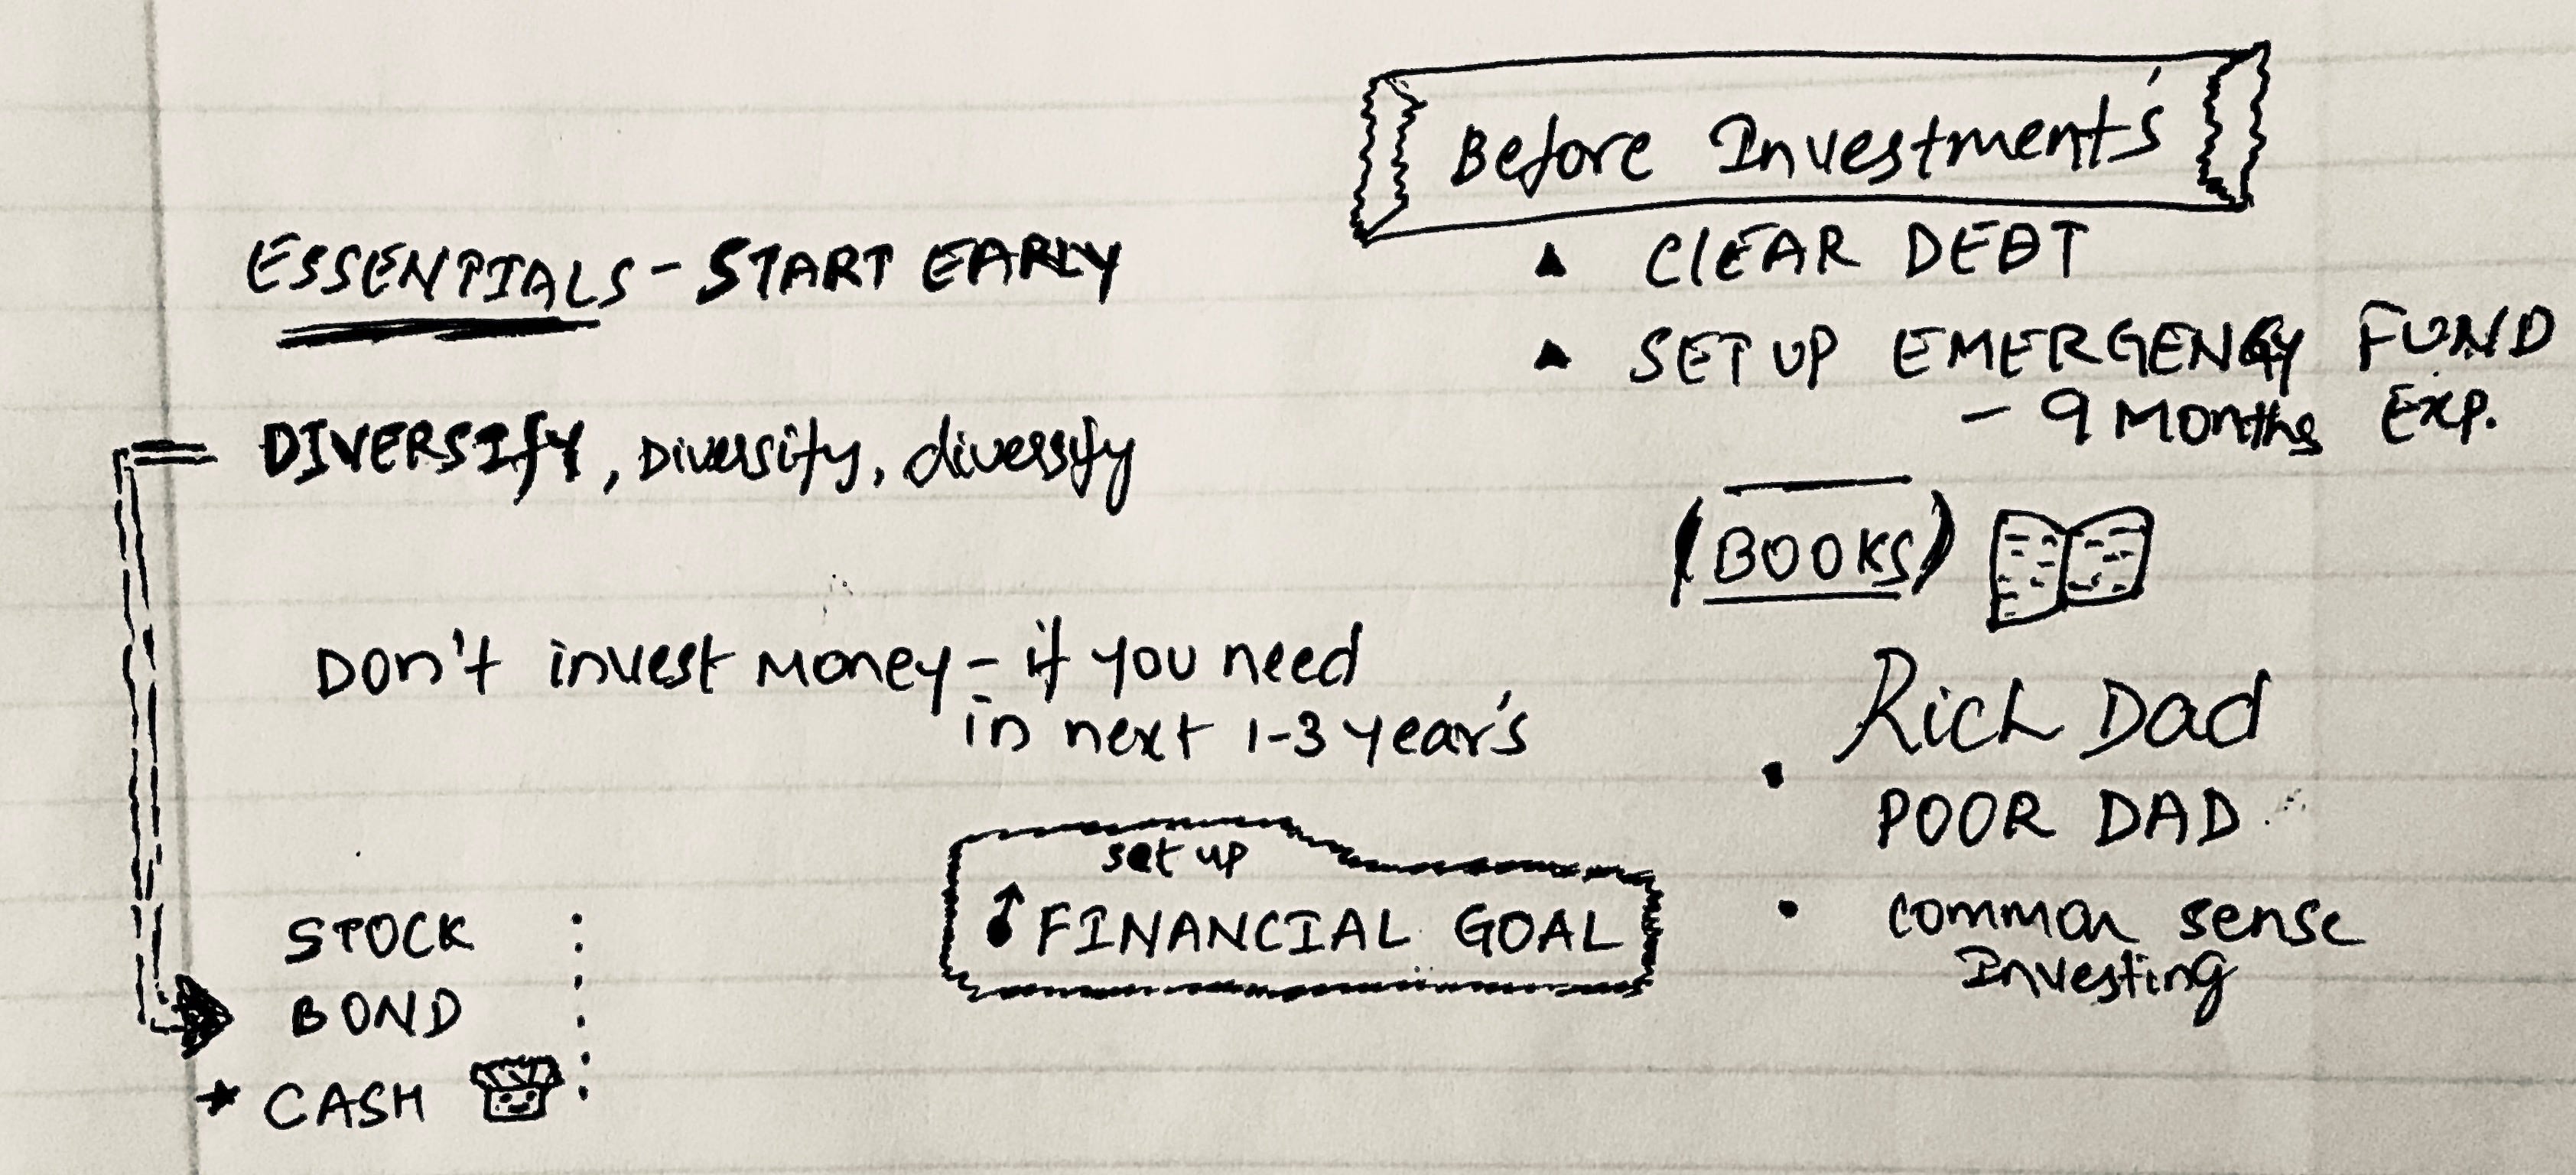 ESSENTIALS - START EARLY
DIVERSIfY, Diversify, diversify
Don't invest Money - if you need
in next 1-3 year's
STOCK
BOND
CASH
set up
FINANCIAL GOAL
Before Investment's
ClEAR DEBT
SET UP EMERGENCY FUND
- 9 Months Exp.
(BOOKS)
Rich Dad
POOR DAD
common sense
Investing